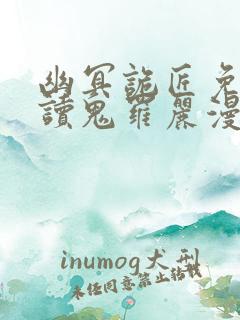 幽冥詭匠免
讀鬼羅麗漫
inumog犬刑
未任同意禁止轉載